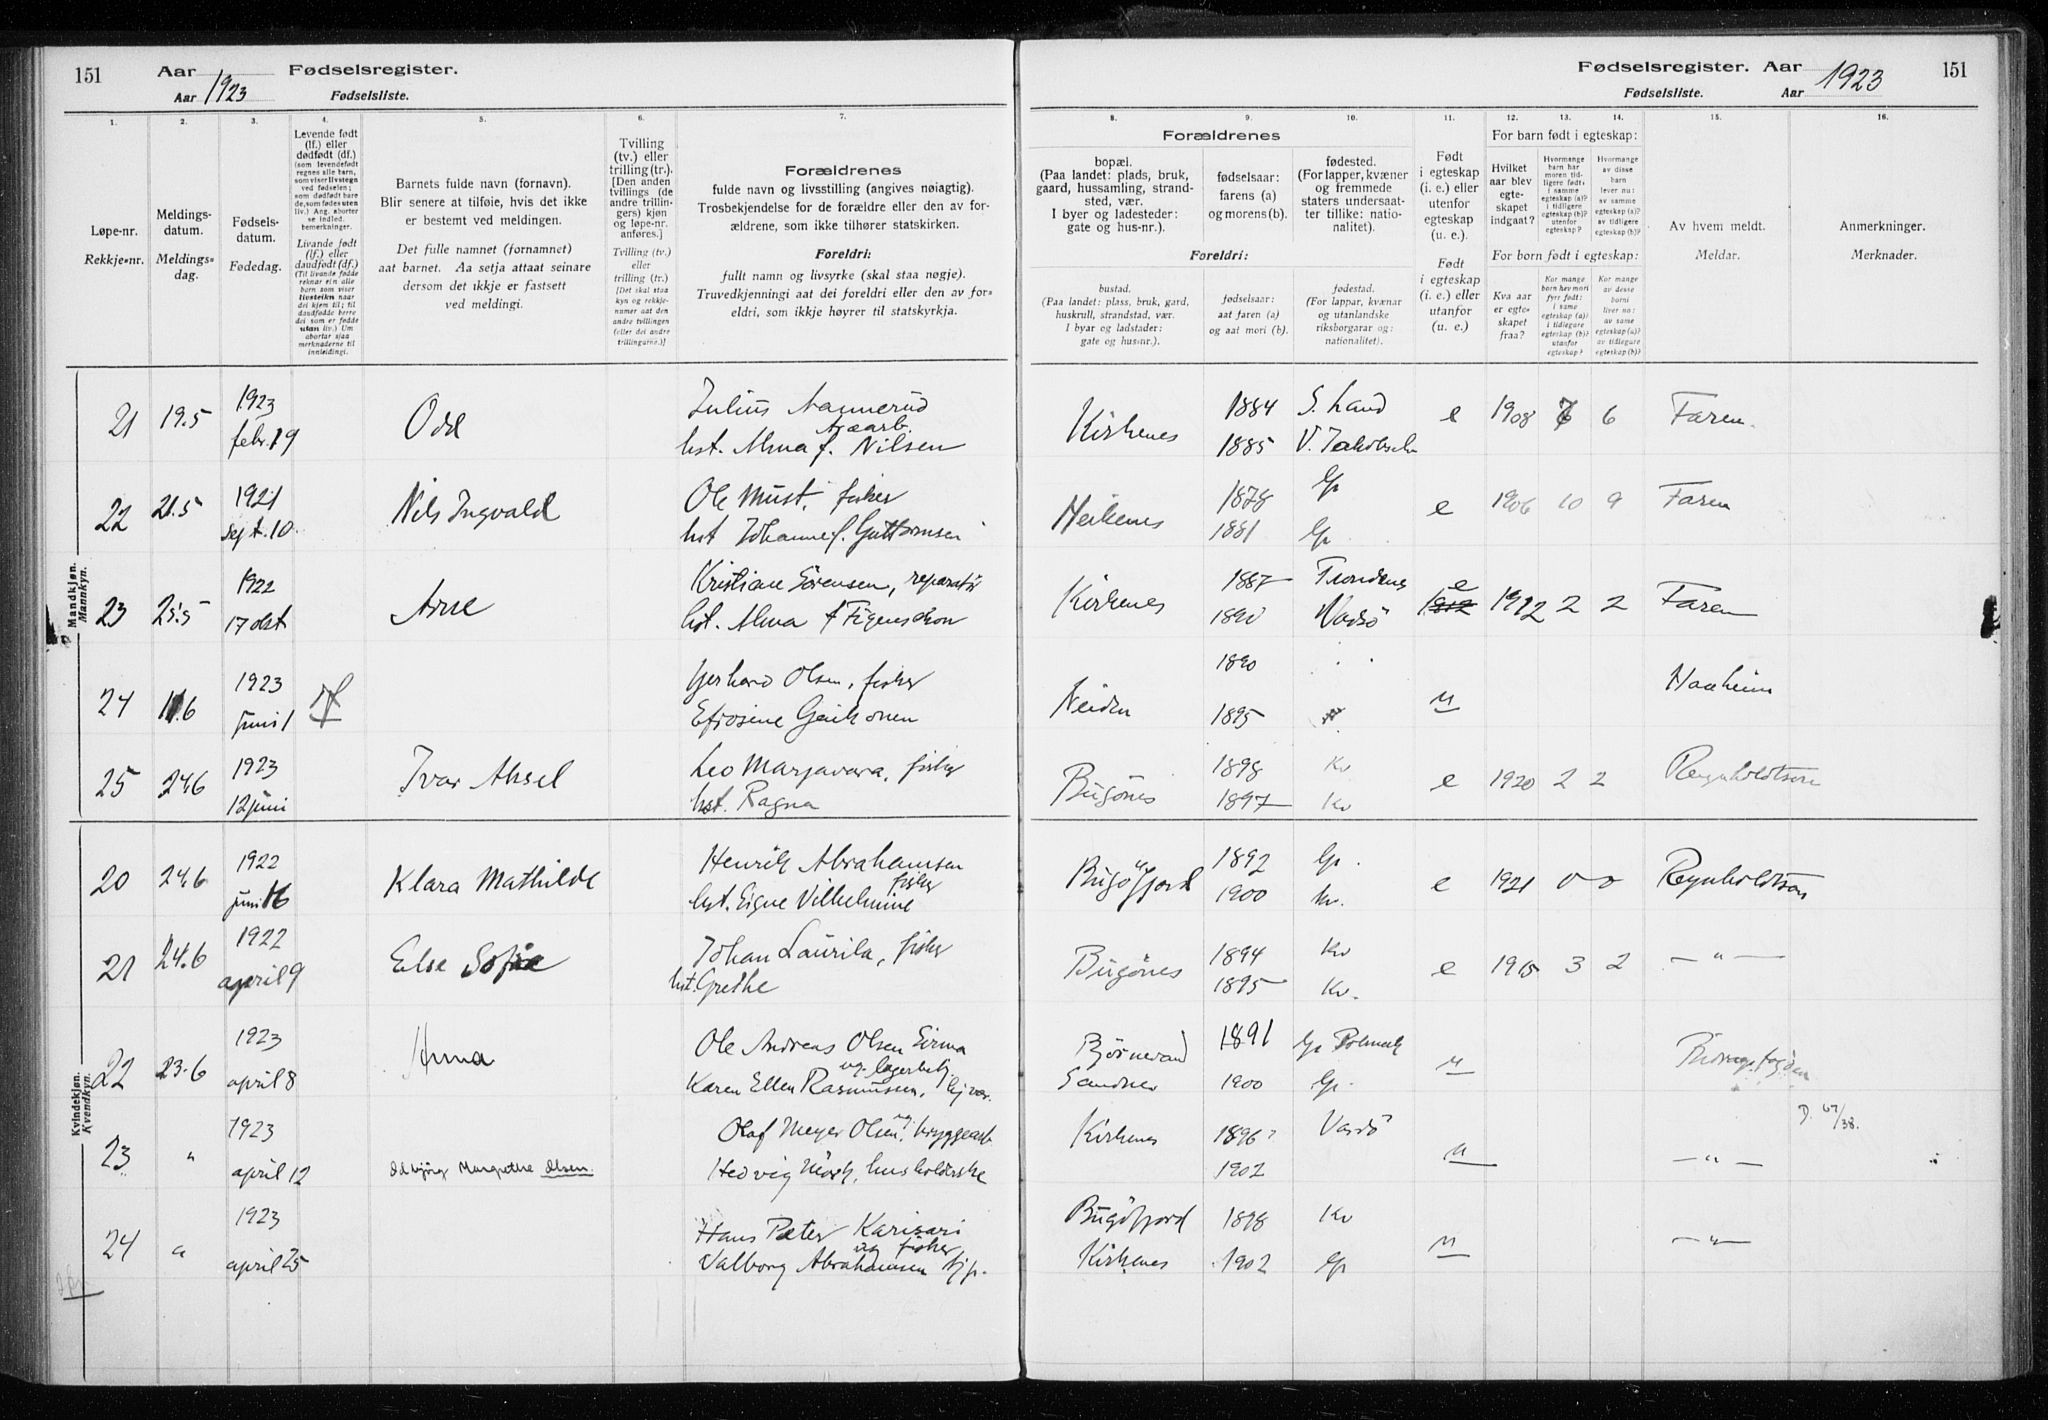 151 Aar 1923 Fødselsregister.
Aar Fødselsliste.
Fødselsregister. Aar 1923 151
Fødselsliste. Aar
1. 2. 3. 4. 5. 6. 7.
Løpe-nr.
Rekkje-nr.
Meldings-
datum.
Meldings-
dag.
Fødsels-
datum.
Fødedag.
Levende født
(lf.) eller
dødfødt (df.)
(som levendefødt
regnes alle barn,
som viser livstegn
ved fødselen;
som dødfødt bare
de, som fødes uten
liv.) Ang. aborter
se indled.
bemerkninger.
Livande født
(lf.) eller
daudfødt (df.)
(Til livande fødde
reknar ein alle
born som viser
livsteikn naar
dei kjem til; til
daudfødde berre
dei som er fødde
utan liv.) Um
abortar sjaa
merknaderne til
innleidingi.
Barnets fulde navn (fornavn).
Blir senere at tilføie, hvis det ikke
er bestemt ved meldingen.
Det fulle namnet (fornamnet)
aat barnet. Aa setja attaat seinare
dersom det ikkje er fastsett
ved meldingi.
Tvilling
(tv.) eller
trilling (tr.).
[Den anden
tvillings (de
andre trillin-
gers) kjøn
og løpe-nr.
anføres.]
Tvilling (tv.)
eller
trilling (tr.)
[Det skal staa
kyn og rekkje-
numer aat den
andre tvillingen
(eller dei andre
trillingarne.)]
Forældrenes
fulde navn og livsstilling (angives nøiagtig).
Trosbekjendelse for de forældre eller den av for-
ældrene, som ikke tilhører statskirken.
Foreldri:
fullt namn og livsyrke (skal staa nøgje).
Truvedkjenningi aat dei foreldri eller den av for-
eldri, som ikkje høyrer til statskyrkja.
8. 9. 10. 11. 12. 13. 14. 15. 16.
Forældrenes
bopæl.
(Paa landet: plads, bruk,
gaard, hussamling, strand-
sted, vær.
I byer og ladesteder:
gate og hus-nr.).
fødselsaar:
farens (a)
og morens (b).
fødested.
(For lapper, kvæner
og fremmede
staters undersaat-
ter tillike: natio-
nalitet).
Foreldri:
bustad.
(Paa landet: plass, bruk, gard,
huskrull, strandstad, vær.
I byar og ladstader:
gate og hus-nr.).
fødselsaar:
aat faren (a)
og aat mori (b).
fødestad.
(For lappar, kvænar
og utanlandske
riksborgarar og:
nationalitet).
Født
i egteskap
(i. e.) eller
utenfor
egteskap
(u. e.).
Født
i egteskap
(i. e.) eller
utanfor
(u. e.)
For barn født i egteskap:
Hvilket
aar blev
egte-
skapet
indgaat?
Hvormange
barn har
moren tid-
ligere født:
i samme
egteskap (a)?
i tidligere
egteskap (b)?
utenfor
egteskap?
Hvormange
av disse
barn
lever nu:
av samme
egteskap (a)?
av tidligere
egteskap (b)?
For born født i egteskap:
Kva aar
er egte-
skapet
fraa?
Kor mange
born hev mori
fyrr født:
i same
egteskap (a)?
i tidlegare
egteskap (b)?
utanfor
egteskap?
Kor mange
av desse
borni
liver no:
av same
egteskap (a)?
av tidlegare
egteskap (b)?
Av hvem meldt.
Meldar.
Anmerkninger.
Merknader.
Mandkjøn.
Mannkyn.
21 19.5 1923 febr. 19 Odd
Julius Nannerud
hst. Alma f. Nilsen
Kirkenes 1884 S. Land e 1908 6 Faren.
1885
22 21.5 1921 sept. 10. Nils Ingvald
Ole Must, fisker
hst Johanne f. Guttormsen
1878 Gp e 1906 10 9 Faren
1881 Gp
23 25.5 1922 17 okt Arne
Kristian Sörensen, reparatör
hst. Alma f Figenschou
Kirkenes 1887 Trondenes e 1912 2 2 Faren
1890 Vadsö
24 6 1923 juni 1
Gerhard Olsen, fisker
Efrosine
Neiden 1890 u Haaheim
1895
25 24.6 1923 12 juni Ivar Aksel
Leo Marjavara, fisker
hst. Ragna
Bugönes 1898 Kv e 1920 2 2 Reynholdtsen
1897 Kv
Kvindekjøn.
Kvendkyn.
20 24.6 1922 juni 16 Klara Mathilde
Henrik Abrahamsen
fisker
hst. Signe Vilhelmine
Bugöfjord 1892 Gp. e 1921 0 0 Reynholdtsen
1900 Kv.
21 24.6 1922 april 9 Else Sofie
Johan Laurila, fisker
hst. Grethe
Bugönes 1894 Kv e 1915 3 2 — " —
1895 Kv.
22 23.6 1923 april 8 Anna
Ole Andreas Olsen Sirma
ug. lagerbetj.
Karen Ellen Rasmussen,
Björnevand 1891 Gp Polmak u
Sandnes 1900 Gp.
23 " 1923 april 12 Odbjörg Margrethe Olsen.
Olaf Meyer Olsen, ug bryggearb
Hedvig Mörk, husholderske
Kirkenes 1896? Vardö u — " — D. 67/38.
1902
24 " 1923 april 25
Hans Peter Karisari
ug fisker
Valborg Abrahamsen tjp.
Bugöfjord 1898 Kv u — " —
Kirkenes 1902 Gp